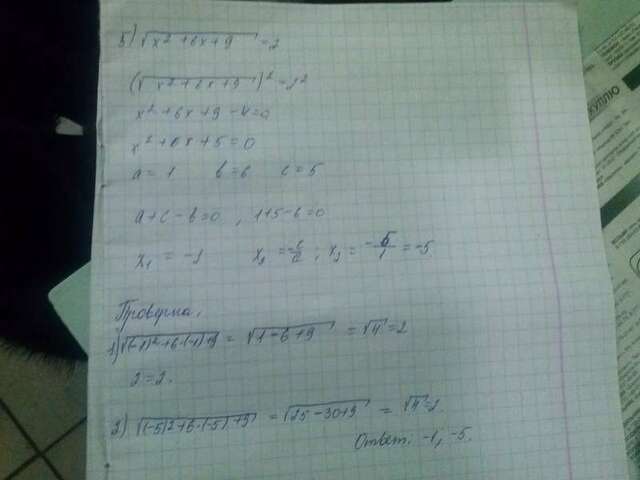 5) √x² + 6x + 9 = 2
(√x² + 6x + 9)² = 2²
x² + 6x + 9 - 4 = 0
x² + 6x + 5 = 0
a = 1 b = 6 c = 5
a + c - b = 0, 1 + 5 - 6 = 0
x₁ = -1 x₂ = -c/a; x₂ = -5/1 = -5
Проверка.
1) √(-1)² + 6·(-1) + 9 = √1 - 6 + 9 = √4 = 2
2 = 2.
2) √(-5)² + 6·(-5) + 9 = √25 - 30 + 9 = √4 = 2
Ответ: -1, -5.
КУПЛЮ